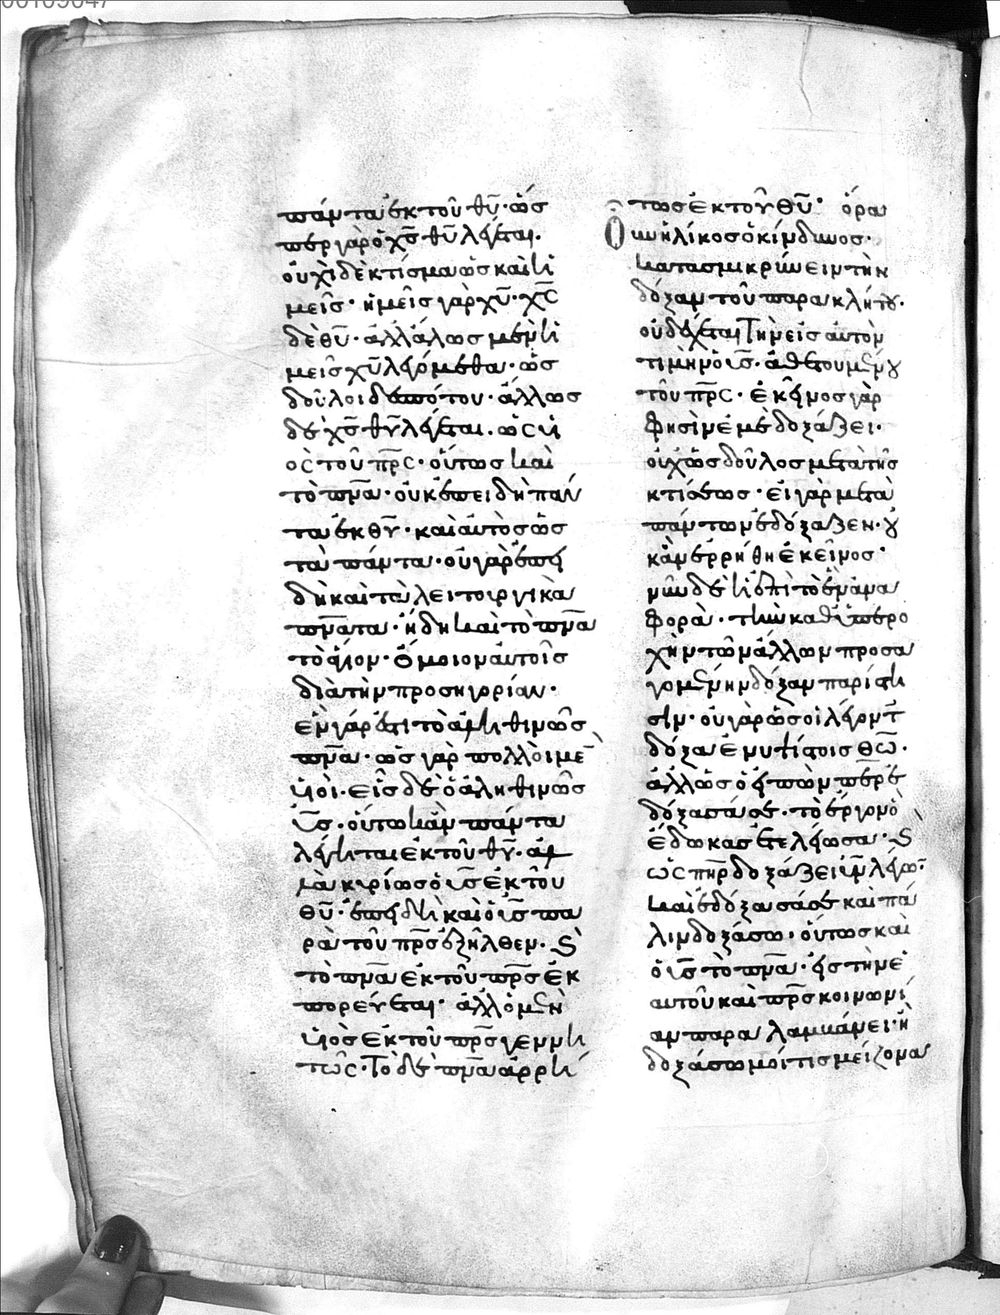 πάντα ἐκ τοῦ θυ̅· ὥσ
περ γὰρ ὁ χσ̅ θυ̅ λέγεται·
οὐχὶ δὲ κτίσμα ὡς καὶ ἡ
μεῖς· ἡμεῖς γὰρ χυ̅· χσ̅
δὲ θυ̅· ἀλλ' ἄλλως μὲν ἡ
μεῖς χυ̅ λεγόμεθα· ὡς
δοῦλοι δεσπότου· ἄλλως
δὲ χσ̅ θυ̅ λέγεται. ὡς υἱ
ὸς τοῦ πρσ̅· οὕτως καὶ
τὸ πνα̅· οὐκ ἐπειδὴ πάν
τα ἐκ θυ̅· καὶ αὐτὸ σῶσ
τὰ πάντα· οὐ γὰρ ἐπει
δὴ καὶ τὰ λειτουργικὰ
πνα̅τα· ἤδη καὶ τὸ πνα̅
τὸ ἅγιον· ὅμοιον αὐτοῖς
διὰ τὴν προσηγορίαν·
ἓν γάρ ἐστι τὸ ἀληθινῶς
πνα̅· ὡς γὰρ πολλοὶ μὲ
υἱοὶ· εἷς δὲ ὁ ἀληθινῶς
υσ̅· οὕτω κἂν πάντα
λέγηται ἐκ τοῦ θυ̅· ἀλ
λὰ κυρίως ὁ υσ̅ ἐκ τοῦ
θυ̅· ἐπειδὴ καὶ ὁ υσ̅ πα
ρὰ τοῦ πρσ̅ ἐξῆλθεν· ϗ
τὸ πνα̅ ἐκ τοῦ πρσ̅ ἐκ
πορεύεται· ἀλλ' ὁ μὲν
υἱὸς ἐκ τοῦ πρσ̅ γεννη
τῶς· Τὸ δὲ πνα̅ ἀρρή
τως ἐκ τοῦ θυ̅· ὅρα
πηλίκος ὁ κίνδυνος·
κατασμικρύνειν τὴν
δόξαν τοῦ παρακλήτου·
οὐ δέχεται Τὴν εἰς αὐτὸν
τιμὴν ὁ υσ̅· ἀθετουμένου
τοῦ πρσ̅· ἐκεῖνος γὰρ
φησὶν ἐμὲ δοξάζει·
οὐχ ὡς δοῦλος μετὰ τῆς
κτίσεως· εἰ γὰρ μετὰ
πάντων ἐδόξαζεν· οὐ
κὰν ἐρρήθη ἐκεῖνος·
νῦν δὲ ἡ ἐπὶ τὸ ἓν ἀνα
φορὰ· τὴν καθ' ὑπερο
χὴν τῶν ἄλλων προσα
γομένην δόξαν παρίστη
σιν· οὐ γὰρ ὡς οἱ λέγοντ
δόξα ἐν ὑψίστοις θω̅·
ἀλλ' ὡς ὁ εἰπὼν περ ἐ
δόξασά σε· τὸ ἔργον ὃ
ἔδωκας ἐτελείωσα· ϗ
ὡς πηρ̅ δοξάζει υν̅ λέγων
καὶ ἐδόξασά σε καὶ πά
λιν δοξάσω· οὕτως καὶ
ὁ υσ̅ τὸ πνα̅· εἰς τὴν ἑ
αυτοῦ καὶ πρσ̅ κοινωνί
αν παραλαμβάνει· ἢ
δοξάσω μοί τις μείζονα